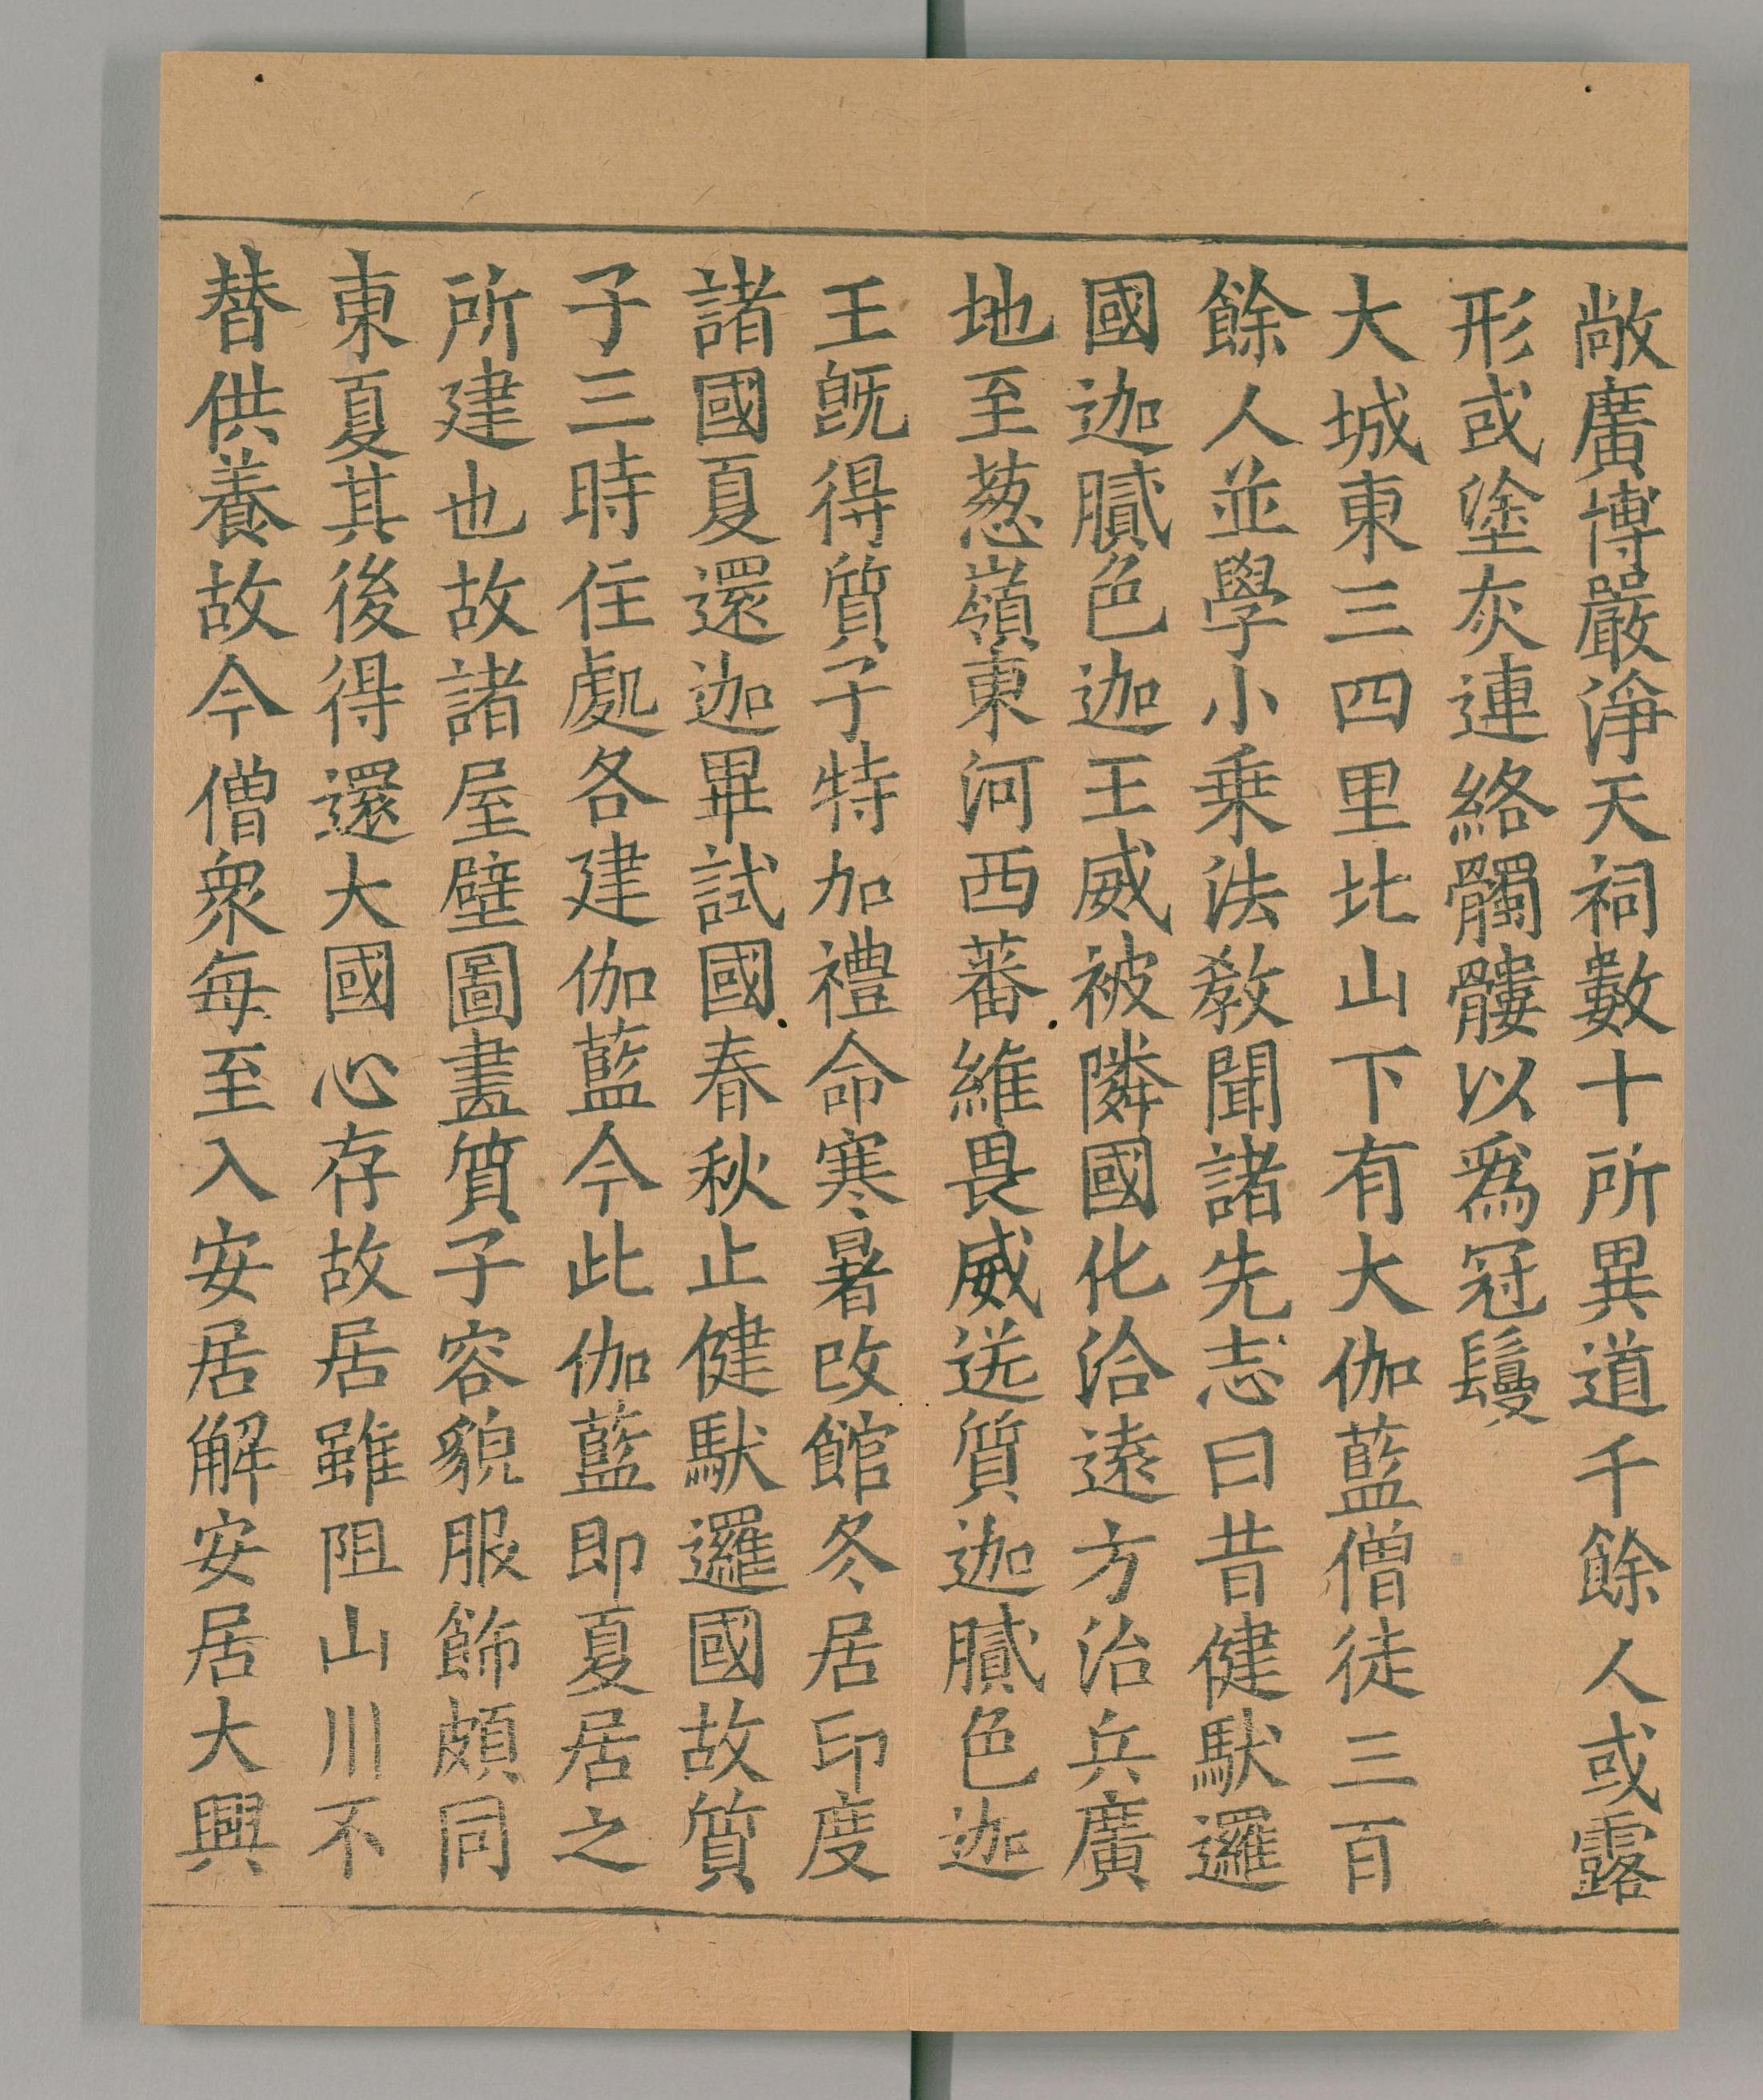 敞廣博嚴淨天祠數十所異道千餘人或露
形或塗灰連絡髑髏以爲冠鬘
大城東三四里北山下有大伽藍僧徒三百
餘人並學小乗法教聞諸先志曰昔健馱邏
國迦膩色迦王威被隣國化洽遠方治兵廣
地至葱嶺東河西蕃維畏威送質迦膩色迦
王旣得質子特加禮命寒暑改館冬居印度
諸國夏還迦畢試國春秋止健馱邏國故質
子三時住處各建伽藍今此伽藍即夏居之
所建也故諸屋壁圖畫質子容貌服飾頗同
東夏其後得還大國心存故居雖阻山川不
替供養故今僧衆每至入安居解安居大興